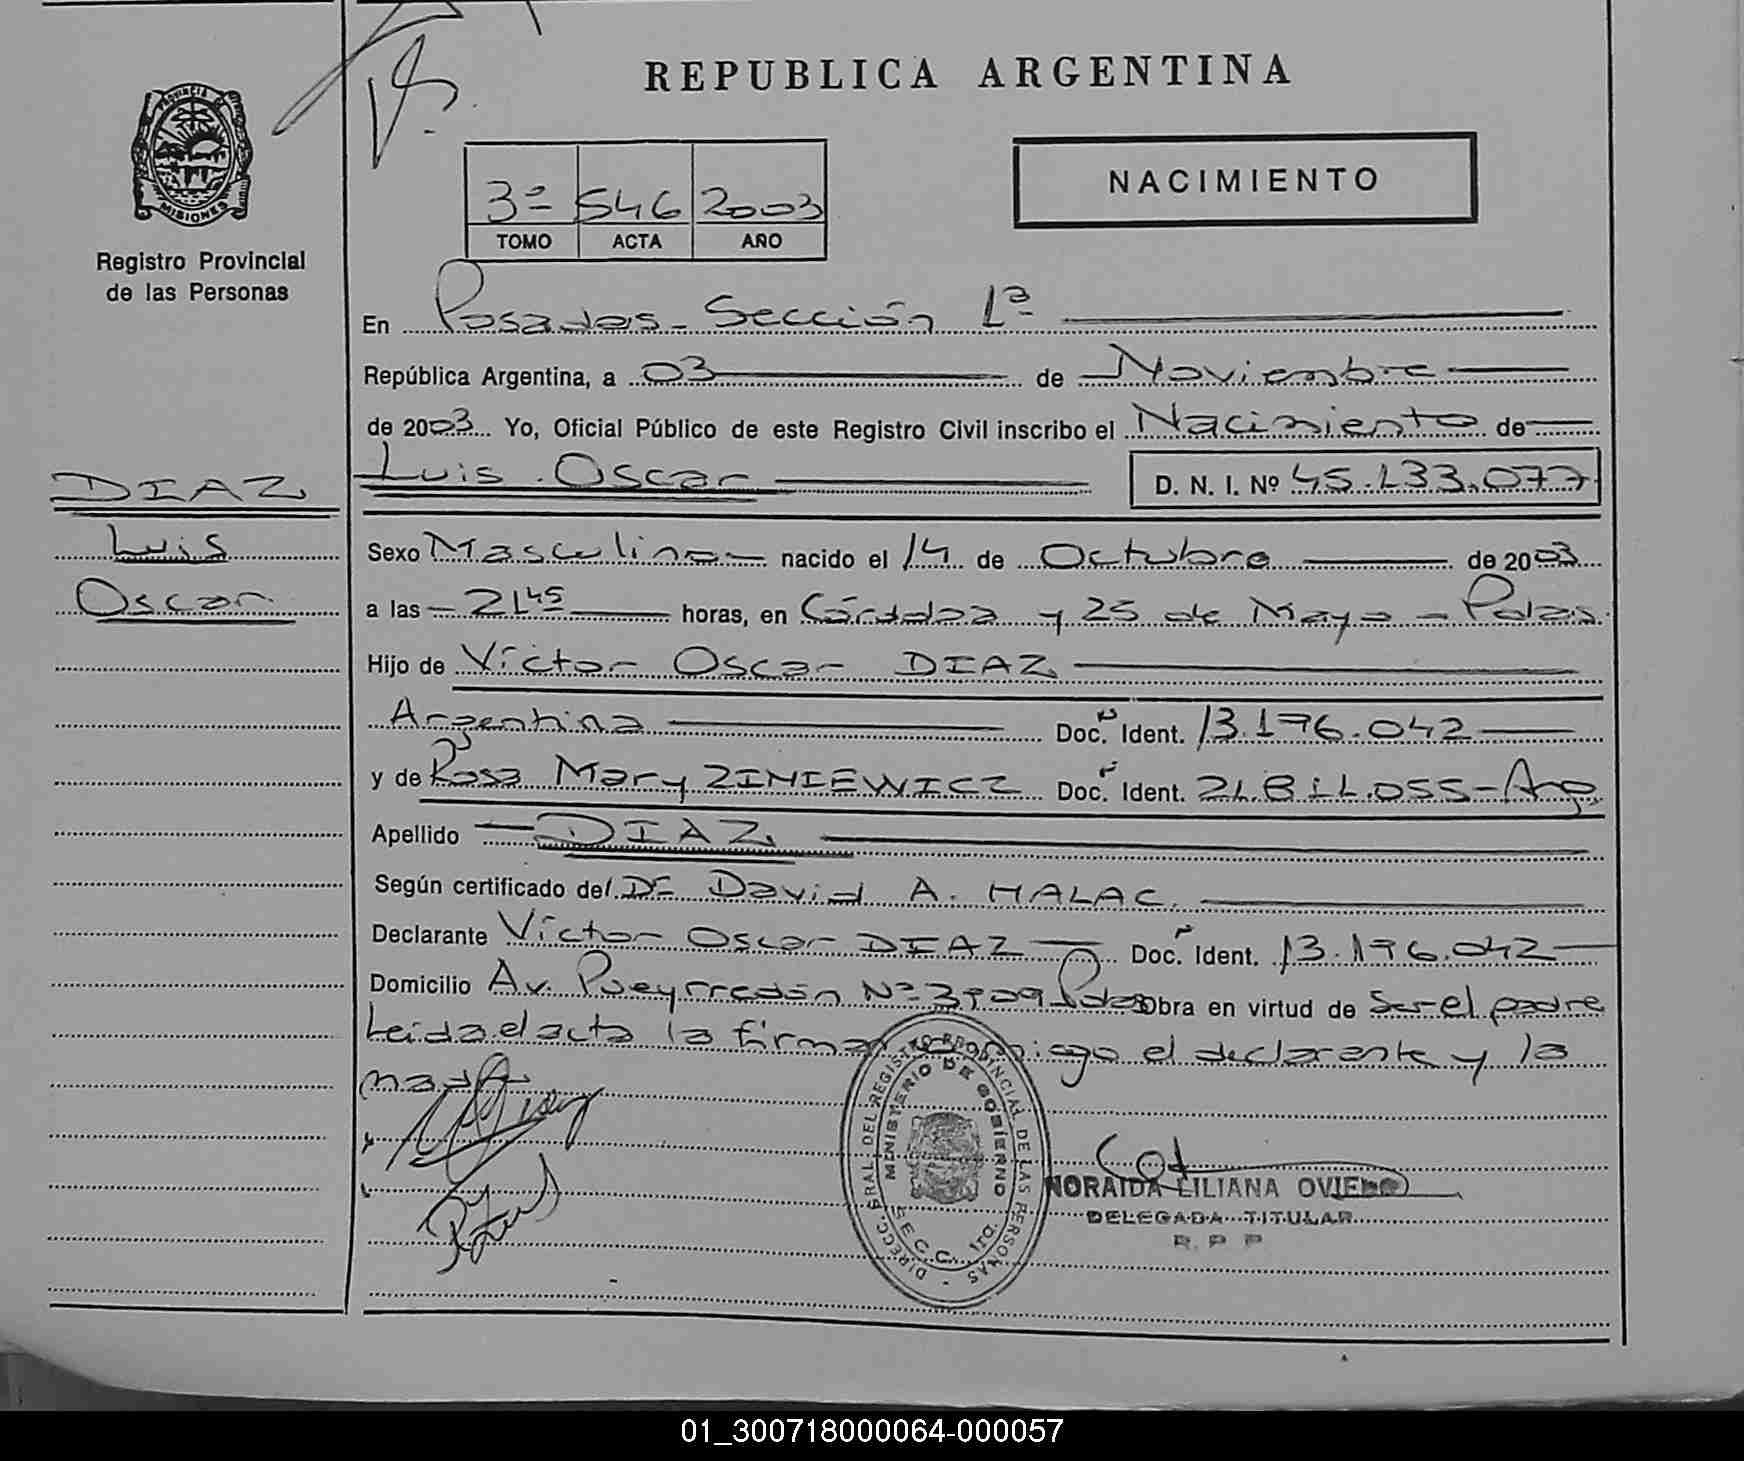 REPUBLICA ARGENTINA
PROVINCIA DE MISIONES
Registro Provincial
de las Personas
3º 546 2003
TOMO ACTA AÑO
NACIMIENTO
En Posadas - Sección 1ª
República Argentina, a 03 de Noviembre
de 2003 Yo, Oficial Público de este Registro Civil inscribo el Nacimiento de
Luis Oscar D. N. I. Nº 45.133.077
DIAZ
Luis
Oscar
Sexo Masculino nacido el 14 de Octubre de 2003
a las 21 45 horas, en Córdoba y 25 de Mayo - Pdas.
Hijo de Víctor Oscar DIAZ
Argentina Doc. Ident. 13.176.042
y de Rosa Mary ZINIEWICZ Doc. Ident. 21.811.055 - Arg
Apellido DIAZ
Según certificado del Dr David A. MALAC.
Declarante Víctor Oscar DIAZ Doc. Ident. 13.176.042
Domicilio Av. Pueyrredón Nº 3909 Pdas Obra en virtud de Ser el padre
Leida el acta la firman conmigo el declarante y la
madre
DIRECC. GRAL. DEL REGISTRO PROVINCIAL DE LAS PERSONAS
MINISTERIO DE GOBIERNO
SECC. 1ra.
NORAIDA LILIANA OVIEDO
DELEGADA TITULAR
R. P P
01_300718000064-000057